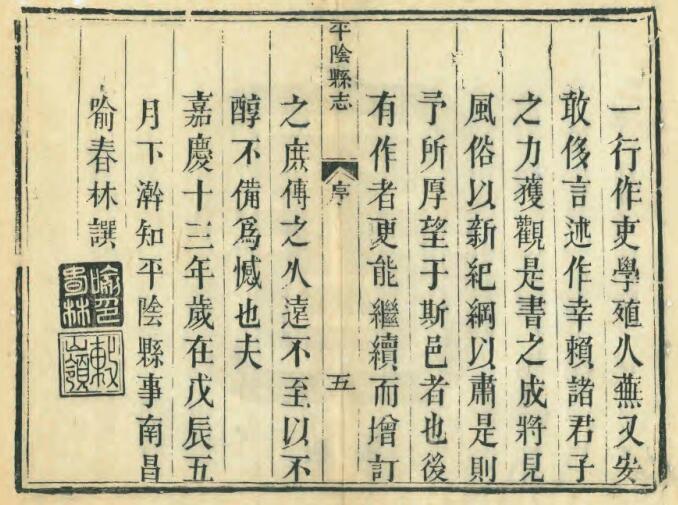 一行作吏學殖久蕪又安
敢侈言述作幸賴諸君子
之力獲觀是書之成將見
風俗以新紀綱以肅是則
予所厚望于斯邑者也後
有作者更能繼續而增訂
平陰縣志
序
五
之庶傳之久遠不至以不
醇不備爲憾也夫
嘉慶十三年歲在戊辰五
月下澣知平陰縣事南昌
喻春林譔
喻春林印